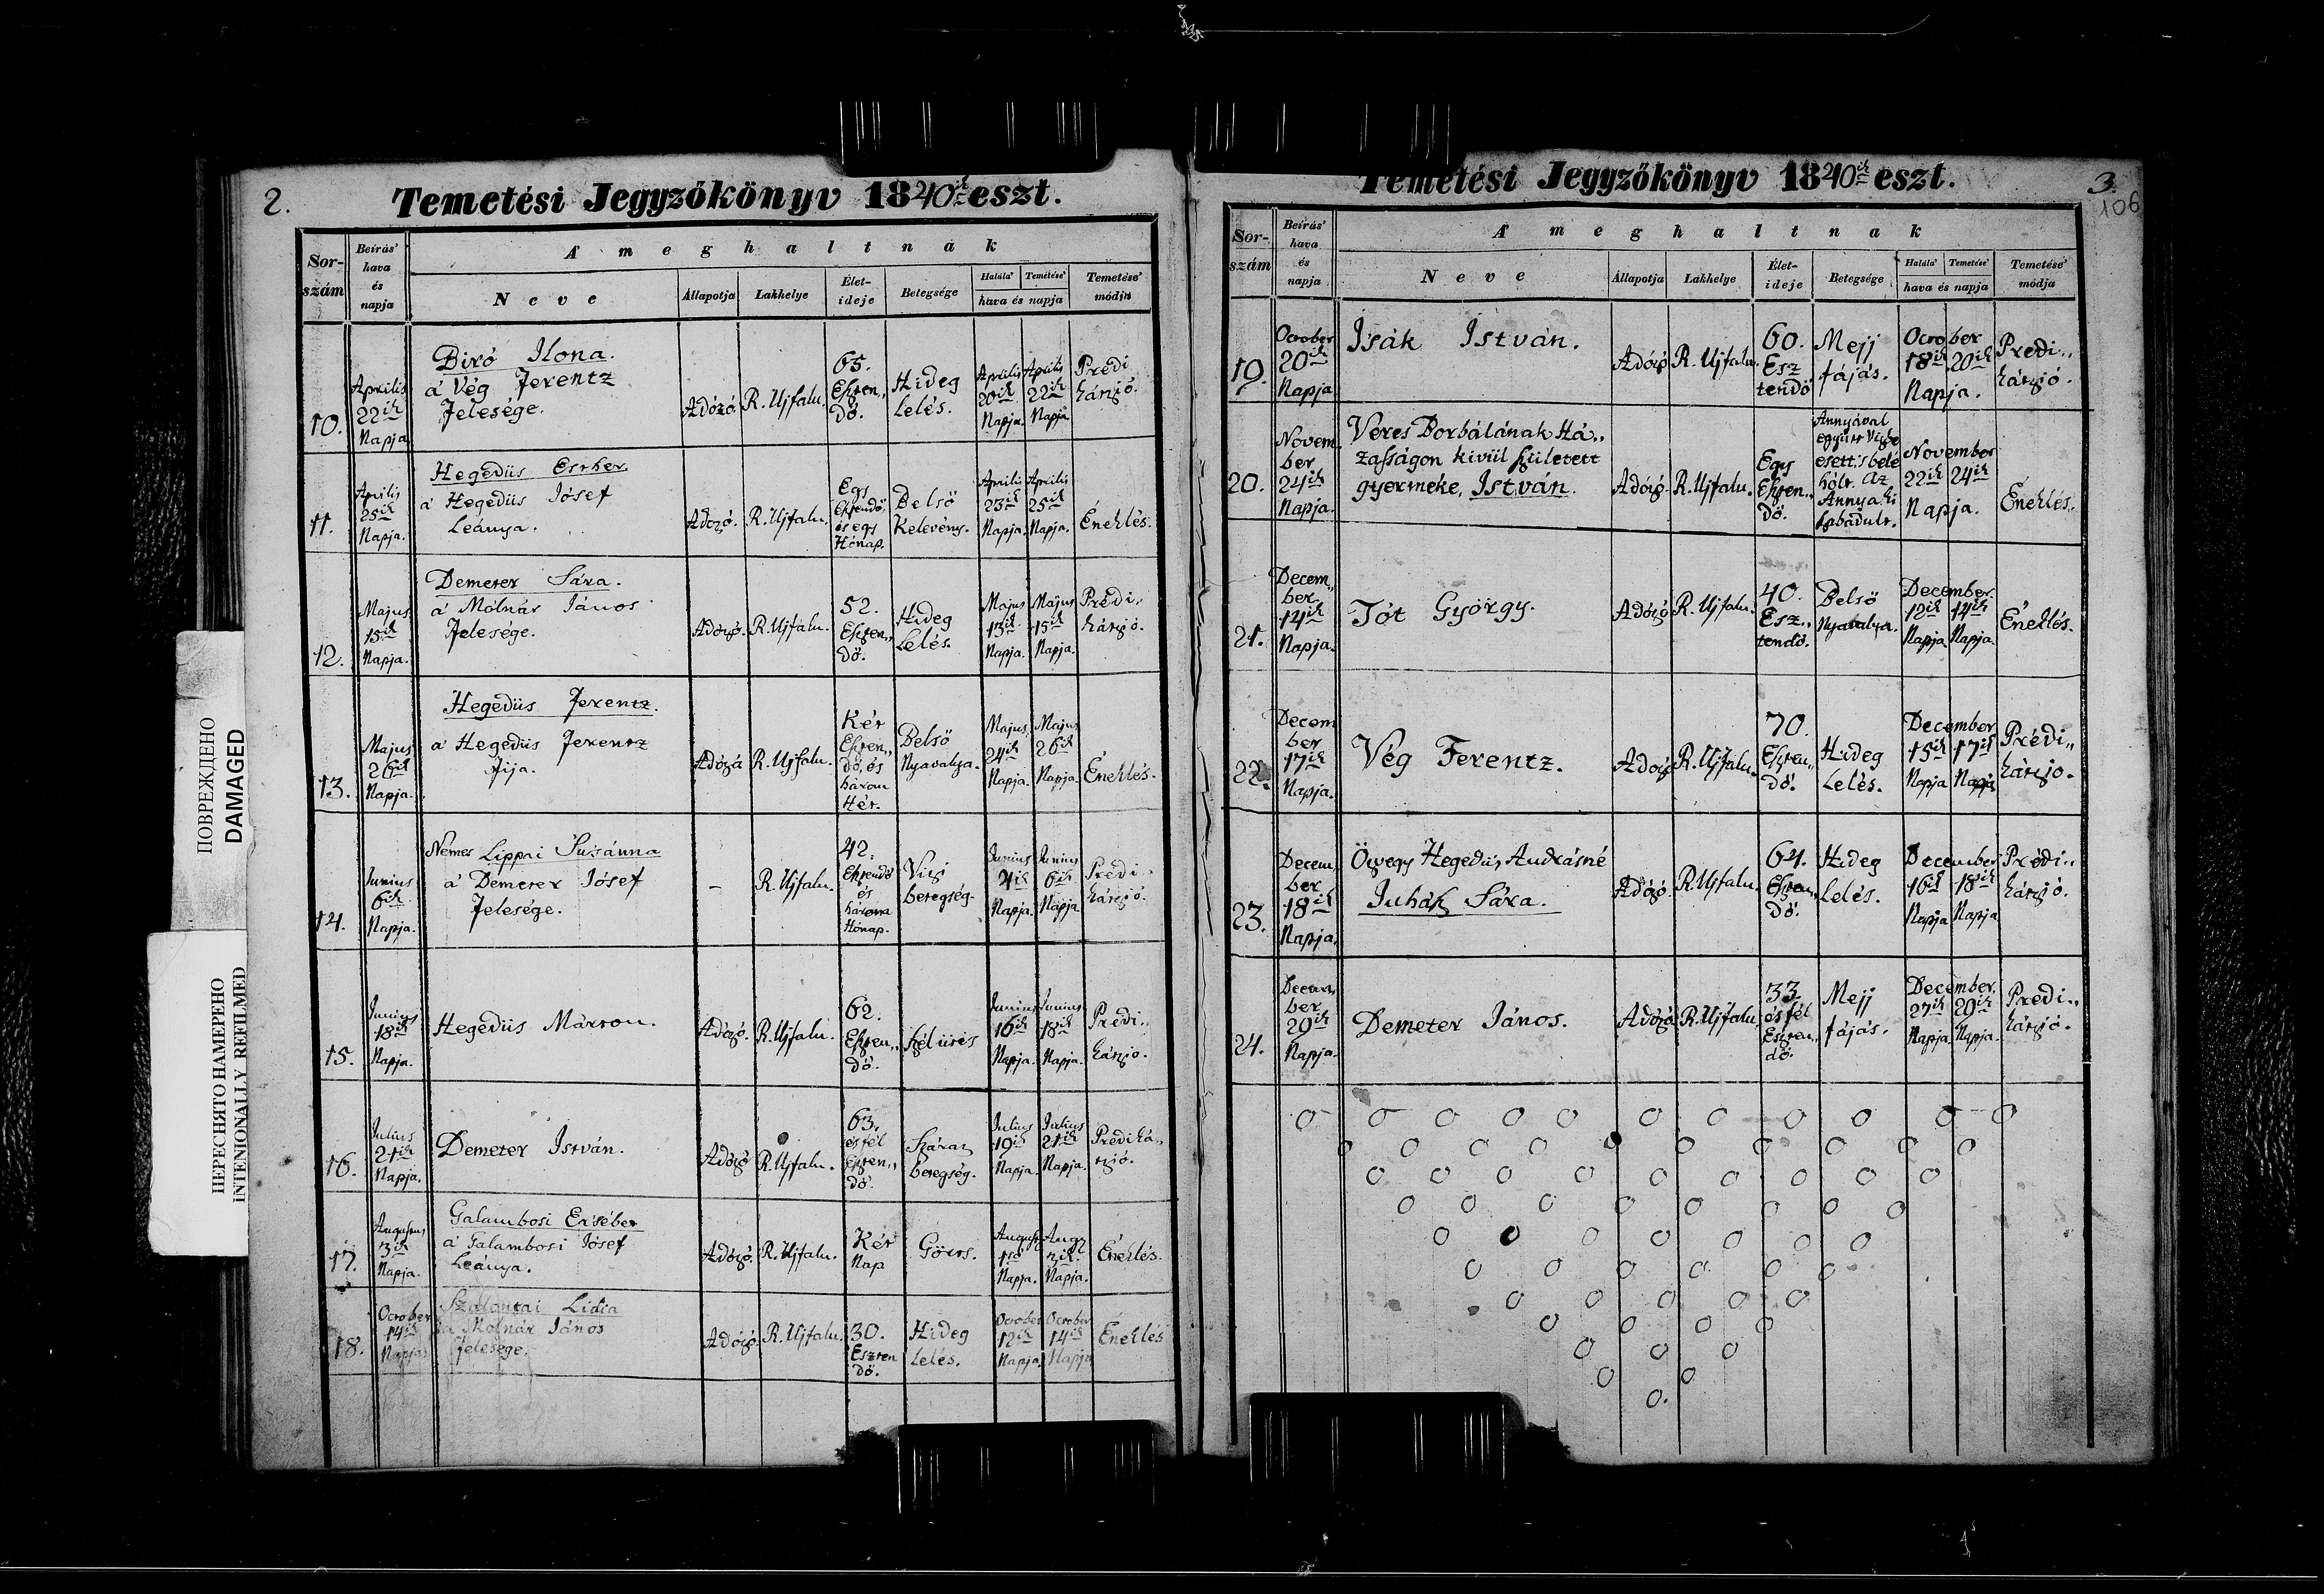 2.
Temetési Jegyzőkönyv 1840ik eszt.
Sor-szám
Beírás' hava és napja
A' meghaltnak
Neve
Állapotja
Lakhelye
Élet-ideje
Betegsége
Halála'
Temetése'
hava és napja
Temetése' módja
10. Aprilis 22ik Napja Biró Ilona. á Vég Ferentz Felesége. Adózó. R. Ujfalu. 65. Eszten,, dő. Hideg Lelés. Aprilis 20ik Napja. Aprilis 22ik Napja Prédikátzió.
11. Aprilis 25ik Napja. Hegedüs Esther. á Hegedüs Jósef Leánya. Adózó. R. Ujfalu. Egy Esztendő, és egy Hónap. Belső Kelevény. Aprilis 23ik Napja. Aprilis 25ik Napja. Éneklés.
12. Majus 15ik Napja. Demeter Sára. á Mólnár János Felesége. Adózó. R. Ujfalu. 52. Eszten,, dő. Hideg Lelés. Majus 13ik Napja. Majus 15ik Napja. Prédi,, kátzió.
13. Majus 26ik Napja. Hegedüs Ferentz. á Hegedüs Ferentz Fija. Adózó R. Ujfalu. Két Eszten,, dő, és három Hét. Belső Nyavalya. Majus 24ik Napja. Majus 26ik Napja. Éneklés.
14. Junius 6ik Napja. Nemes Lippai Susánna á Demeter Jósef Felesége. – R. Ujfalu. 42. Esztendő és három Hónap. Vizi betegség. Junius 4ik Napja. Junius 6ik Napja. Prédikátzió.
15. Junius 18ik Napja. Hegedüs Márton. Adózó. R. Ujfalu. 62. Eszten,, dő. Szélütés Junius 16ik Napja. Junius 18ik Napja. Prédi,, kátzió.
16. Julius 21ik Napja. Demeter István. Adózó R. Ujfalu. 63. és fél Eszten,, dő. Száraz betegség. Julius 19ik Napja. Julius 21ik Napja. Prédiká,, tzió.
17. Augustus 3ik Napja. Galambosi Ersébet á Galambosi Jósef Leánya. Adózó. R. Ujfalu. Két Nap Görts. August. 1ső Napja. Aug. 3ik. Napja. Éneklés.
18. October 14ik Napja Szalontai Lidia á Molnár János felesége. Adózó. R. Ujfalu. 30. Eszten dő. Hideg Lelés. October 12ik Napja. October 14ik Napja Éneklés
3.
106
Temetési Jegyzőkönyv 1840ik eszt.
Sor-szám
Beírás' hava és napja
A' meghaltnak
Neve
Állapotja
Lakhelye
Élet-ideje
Betegsége
Halála'
Temetése'
hava és napja
Temetése' módja
19. October 20ik Napja Isák István. Adózó R. Ujfalu. 60. Esz tendő Mejj fájás. October 18ik 20ik Napja. Prédi,, kátzió.
20. Novem ber 24ik Napja. Veres Borbálának Há,, zasságon kivül született gyermeke, István. Adózó. R. Ujfalu. Egy Eszten,, dő. Annyával együtt Vizbe esett, 's belé hólt. Az Annya ki szabadult. November 22ik 24ik Napja. Éneklés.
21. Decem,, ber 14ik Napja. Tót György. Adózó R. Ujfalu. 40. Esz,, tendő. Belső Nyavalya. December 12ik 14ik Napja Napja. Éneklés.
22. Decem ber 17ik Napja. Vég Ferentz. Adózó R. Ujfalu. 70. Eszten,, dő. Hideg Lelés. December 15ik 17ik Napja Napja Prédi,, kátzio.
23. Decem,, ber 18ik Napja. Özvegy Hegedüs Andrásné Juhász Sára. Adózó. R. Ujfalu. 64. Eszten,, dő. Hideg Lelés. December 16ik 18ik Napja Napja Prédi,, kátzió.
24. Decem,, ber 29ik Napja. Demeter János. Adózó R. Ujfalu. 33 és fél Eszten,, dő. Mejj fájás. December. 27ik 29ik Napja. Napja. Prédi,, kátzió.
ПОВРЕЖДЕНО
DAMAGED
ПЕРЕСНЯТО НАМЕРЕНО
INTENIONALLY REFILMED